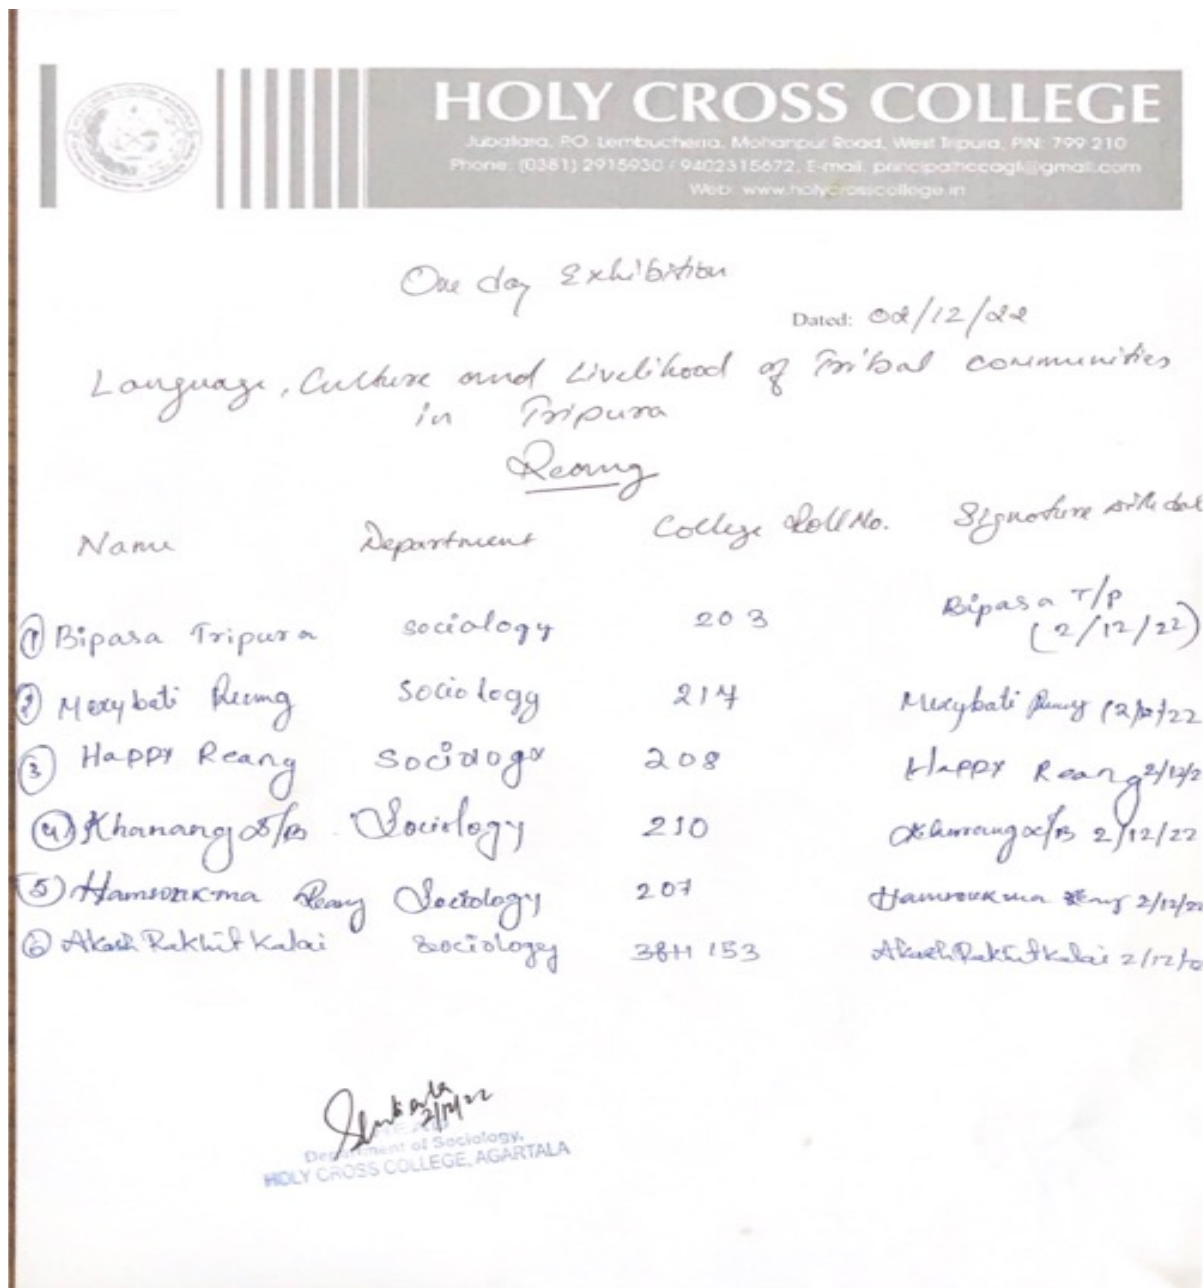 HOLY CROSS COLLEGE
Jubatara, P.O. Lembucherra, Mohanpur Road, West Tripura, PIN: 799 210
Phone: (0381) 2915930 / 9402315672, E-mail: principalhccagt@gmail.com
Web: www.holycrosscollege.in
One day Exhibition
Dated: 02/12/22
Language, Culture and Livelihood of Tribal communities
in Tripura
Reang
Name Department College Roll No. Signature with
① Bipasa Tripura sociology 203 Bipasa T/P (2/12/22)
② Merybati Reang Sociology 217 Merybati Reang (2/12/22
③ Happy Reang Sociology 208 Happy Reang 2/12/2
④ Khanang Sociology 210 2/12/22
⑤ Reang Sociology 207 Reang 2/12/22
⑥ Akash Rakhit Kalai Sociology 38H 153 Akash Rakhit Kalai 2/12/
2/12/22
HEAD
Department of Sociology,
HOLY CROSS COLLEGE, AGARTALA